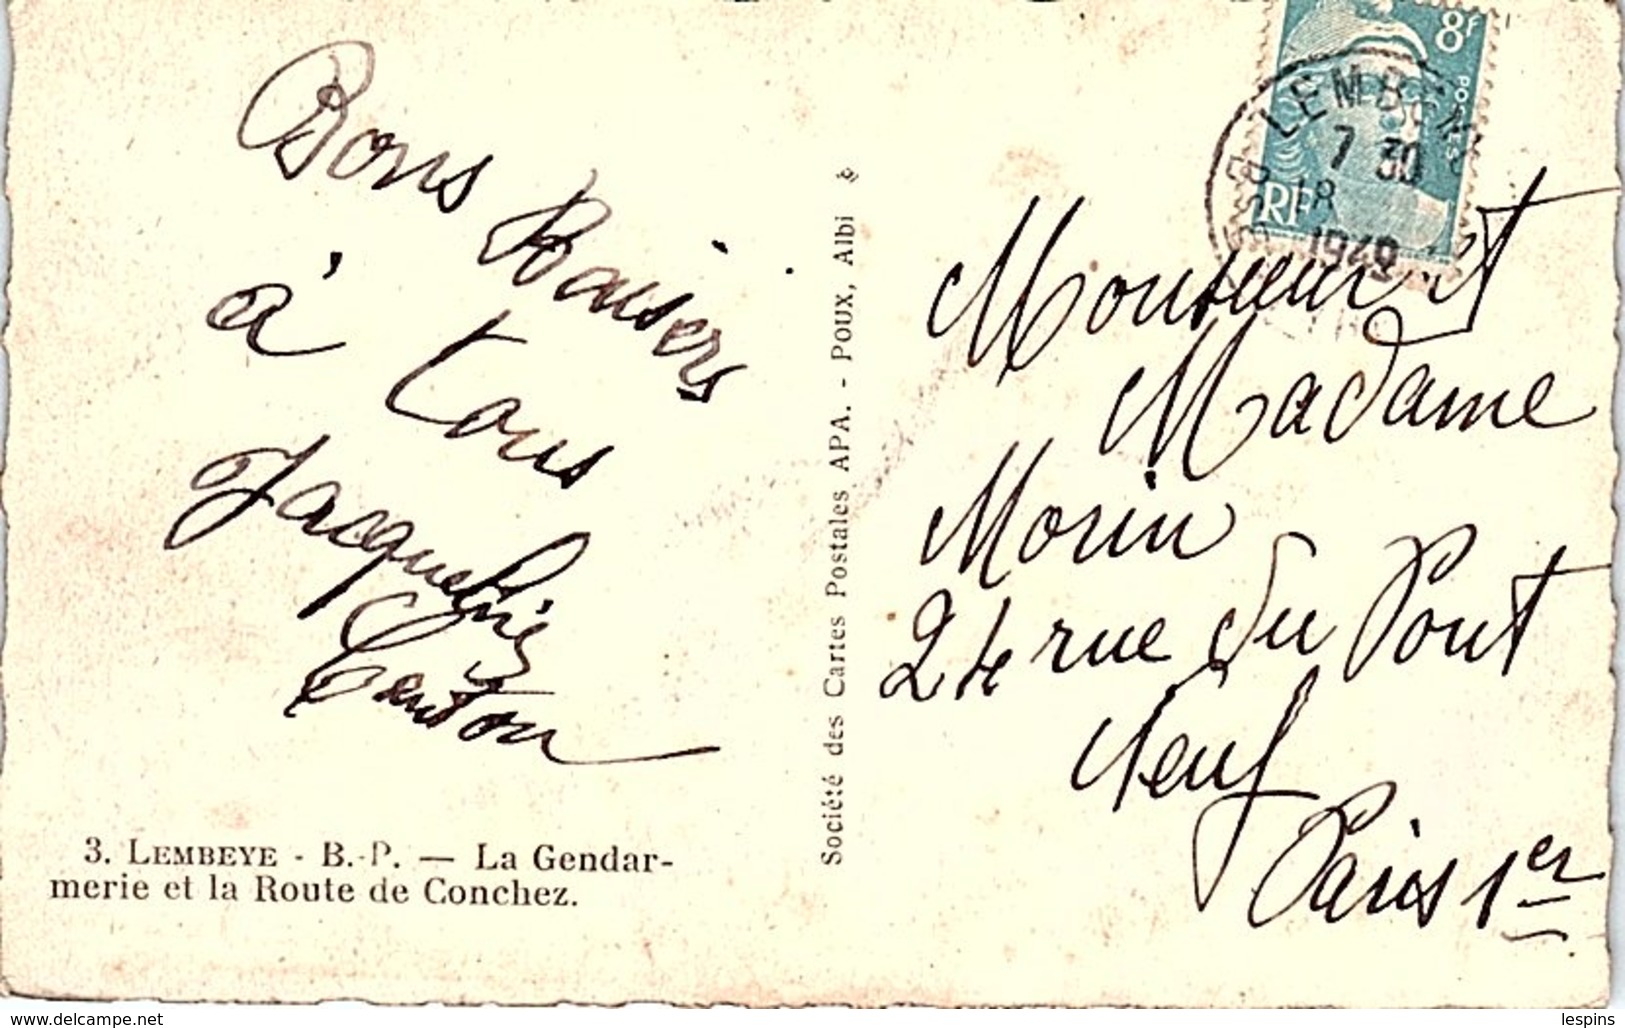 Bons Baisers
à tous
Jacqueline
3. LEMBEYE - B.-P. — La Gendar-
merie et la Route de Conchez.
Société des Cartes Postales APA. - POUX, Albi
8f
POSTES
RF
LEMBEYE
7 30
18
1949
Monsieur et
Madame
Morin
24 rue du Pont
Neuf
Paris 1er
www.delcampe.net
lespins